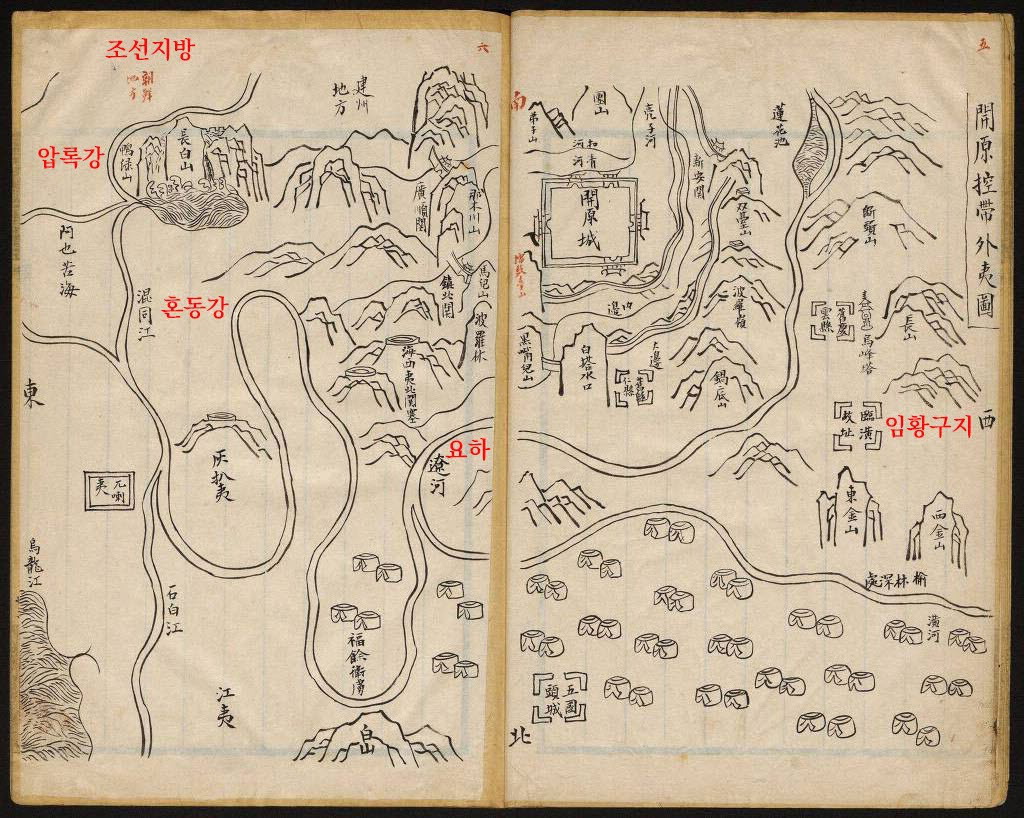 五
開原控帶外夷圖
蓮花池
亮子河
團山
弟子山
南
新安関
開原城
双臺山
斷頭山
波羅嶺
舊慶雲縣
烏峰塔
長山
大邊
邊
黑嘴兒山
白塔水口
鍋底山
臨潢故址
임황구지
西
東金山
西金山
榆林深處
潢河
五國頭城
北
六
조선지방
朝鮮地方
建州地方
압록강
鴨淥山
長白山
廣順関
那木川山
阿也苦海
混同江
혼동강
鎮北関
馬兒山
波羅林
海西夷北関塞
東
灰扒夷
요하
遼河
兀喇夷
烏龍江
石白江
福餘衛夷
江夷
白山